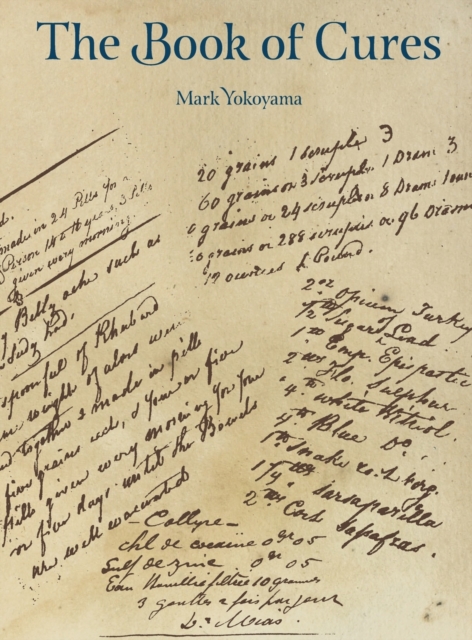 The Book of Cures
Mark Yokoyama
20 grains 1 scruple 3
60 grains or 3 scruples 1 Dram 3
grains or 24 scruples or 8 Drams 1 oun
grains or 288 scruples or 96 Drams
12 ounces 1 Pound.
d.
made in 24 Pills for a
Person 14 to 16 years, 3 Pills
given every morning
g Belly ache such as
spoonful of Rhubarb
weight of aloes
together & made in pills
five grains each, & four or five
Pills given every morning for four
or five days until the Bowels
are well evacuated
2 oz Opium Turkey
Sugar Lead.
1 oz Emp. Epispastic
2 oz Flo. Sulphur
4 oz White Vitriol.
4 oz Blue Do.
1 oz Snake root Virg.
1/4 Sarsaparilla
2 oz Cort Sasafras.
- Collyre -
chl de cocaïne 0gr 05
Sulf de zinc 0gr 05
Eau distillée filtrée 10 grammes
3 gouttes 2 fois par jour